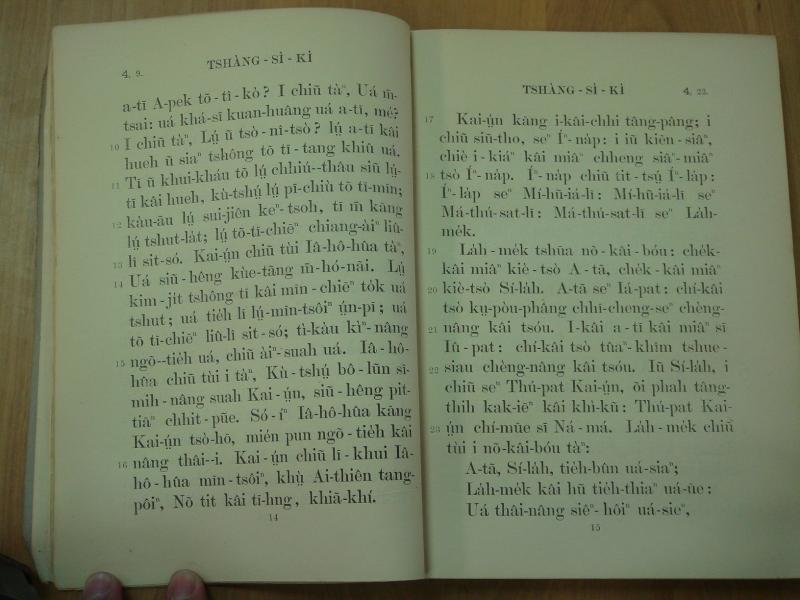 4, 9.
TSHÀNG - SÌ - KÌ
a-tĩ A-pek tõ-tî-kò? I chiũ tàⁿ, Uá m̃-
tsai: uá khá-sĩ kuan-huâng uá a-tĩ, mé?
10 I chiũ tàⁿ, Lṳ́ ũ tsò-nî-tsò? lṳ́ a-tĩ kâi
hueh ũ siaⁿ tshông tõ tĩ-tang khiũ uá.
11 Tĩ ũ khui-kháu tõ lṳ́ chhiú--thâu siũ lṳ́-
tĩ kâi hueh, kù-tshṳ́ lṳ́ pĩ-chiù tõ tĩ-mĩn;
12 kàu-āu lṳ́ sui-jiên keⁿ-tsoh, tĩ m̃ kāng
lṳ́ tshut-la̍t; lṳ́ tõ-tĩ-chiēⁿ chiang-àiⁿ liû-
13 lî sit-só. Kai-ṳ́n chiũ tùi Iâ-hô-hûa tàⁿ,
Uá siũ-hêng kùe-tãng m̃-hó-nāi. Lṳ́
14 kim-ji̍t tshông tĩ kâi mĩn-chiēⁿ to̍k uá
tshut; uá tie̍h lī lṳ́-mīn-tsôiⁿ ṳ́n-pī; uá
tõ tĩ-chiēⁿ liû-lî sit-só; tì-kàu kìⁿ-nâng
15 ngõ--tie̍h uá, chiũ àiⁿ-suah uá. Iâ-hô-
hûa chiũ tùi i tàⁿ, Kù-tshṳ́ bô-lũn sĩ-
mih-nâng suah Kai-ṳ́n, siũ-hêng pit-
tiãⁿ chhit-pūe. Só-íⁿ Iâ-hô-hûa kāng
Kai-ṳ́n tsò-hõ, mién pun ngõ-tie̍h kâi
16 nâng thâi--i. Kai-ṳ́n chiũ lī-khui Iâ-
hô-hûa mīn-tsôiⁿ, khṳ̀ Ai-thiên tang-
pôiⁿ, Nõ tit kâi tī-hng, khiā-khí.
14
TSHÀNG - SÌ - KÌ
4, 23.
17 Kai-ṳ́n kāng i-kâi-chhi tâng-pâng; i
chiũ siũ-tho, seⁿ Íⁿ-náp: i iũ kièn-siâⁿ,
chiè i-kiáⁿ kâi miâⁿ chheng siâⁿ-miâⁿ
18 tsò Íⁿ-náp. Íⁿ-náp chiũ tit-tsṳ́ Íⁿ-láp:
Íⁿ-láp seⁿ Mí-hũ-iá-lī: Mí-hũ-iá-lī seⁿ
Má-thú-sat-lī: Má-thú-sat-lī seⁿ La̍h-
me̍k.
19 La̍h-me̍k tshūa nõ-kâi-bóu: che̍k-
kâi miâⁿ kiè-tsò A-tā, che̍k-kâi miâⁿ
20 kiè-tsò Sí-la̍h. A-tā seⁿ Iá-pat: chí-kâi
tsò kṳ-pòu-phâng chhī-cheng-seⁿ chèng-
21 nâng kâi tsóu. I-kâi a-tĩ kâi miâⁿ sĩ
Iû-pat: chí-kâi tsò tûaⁿ-khîm tshue-
22 siau chèng-nâng kâi tsóu. Iũ Sí-la̍h, i
chiũ seⁿ Thú-pat Kai-ṳ́n, õi phah tâng-
thih kak-iēⁿ kâi khì-kũ: Thú-pat Kai-
ṳ́n chí-mūe sĩ Ná-má.
23 La̍h-me̍k chiũ
tùi i nõ-kâi-bóu tàⁿ:
A-tā, Sí-la̍h, tie̍h-bûn uá-siaⁿ;
La̍h-me̍k kâi hũ tie̍h-thiaⁿ uá-ūe:
Uá thâi-nâng siêⁿ-hôiⁿ uá-sieⁿ,
15